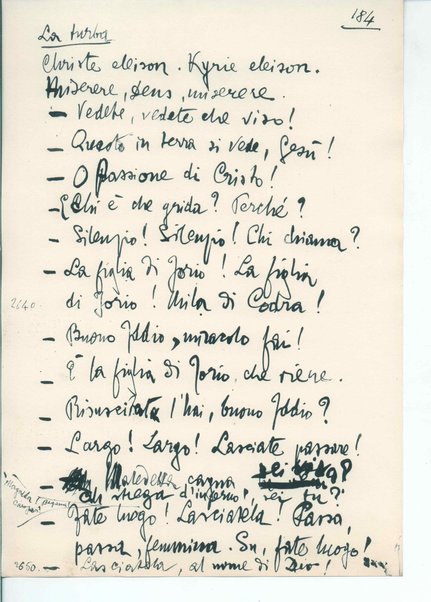 184
La turba
Christe eleison. Kyrie eleison.
Miserere, deus, miserere.
— Vedete, vedete che viso!
— Questo in terra si vede, Gesù!
— O Passione di Cristo!
— E chi è che grida? Perché?
— Silenzio! Silenzio! Chi chiama?
— La figlia di Jorio! La figlia
2640. di Jorio! Mila di Codra!
— Buono Iddio, miracolo fai!
— È la figlia di Jorio che viene.
— Risuscitata l'hai, buono Iddio?
— Largo! Largo! Lasciate passare!
— Maledetta cagna sei viva?
Ah strega d'inferno, sei tu?
— Fate luogo! Lasciatela! Passa,
passa, femmina. Su, fate luogo!
2650. — Lasciatela, al nome di Dio!